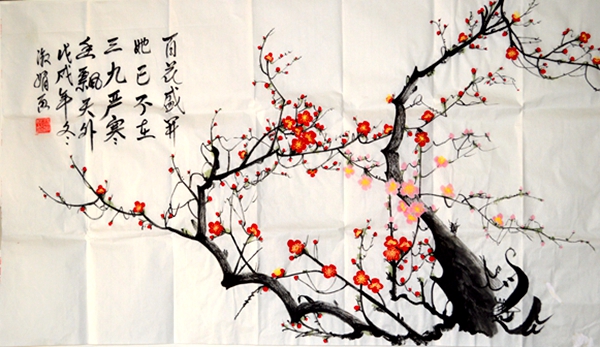 百花盛开
她已不在
三九严寒
香飘天外
戊戌年冬
淑娟画